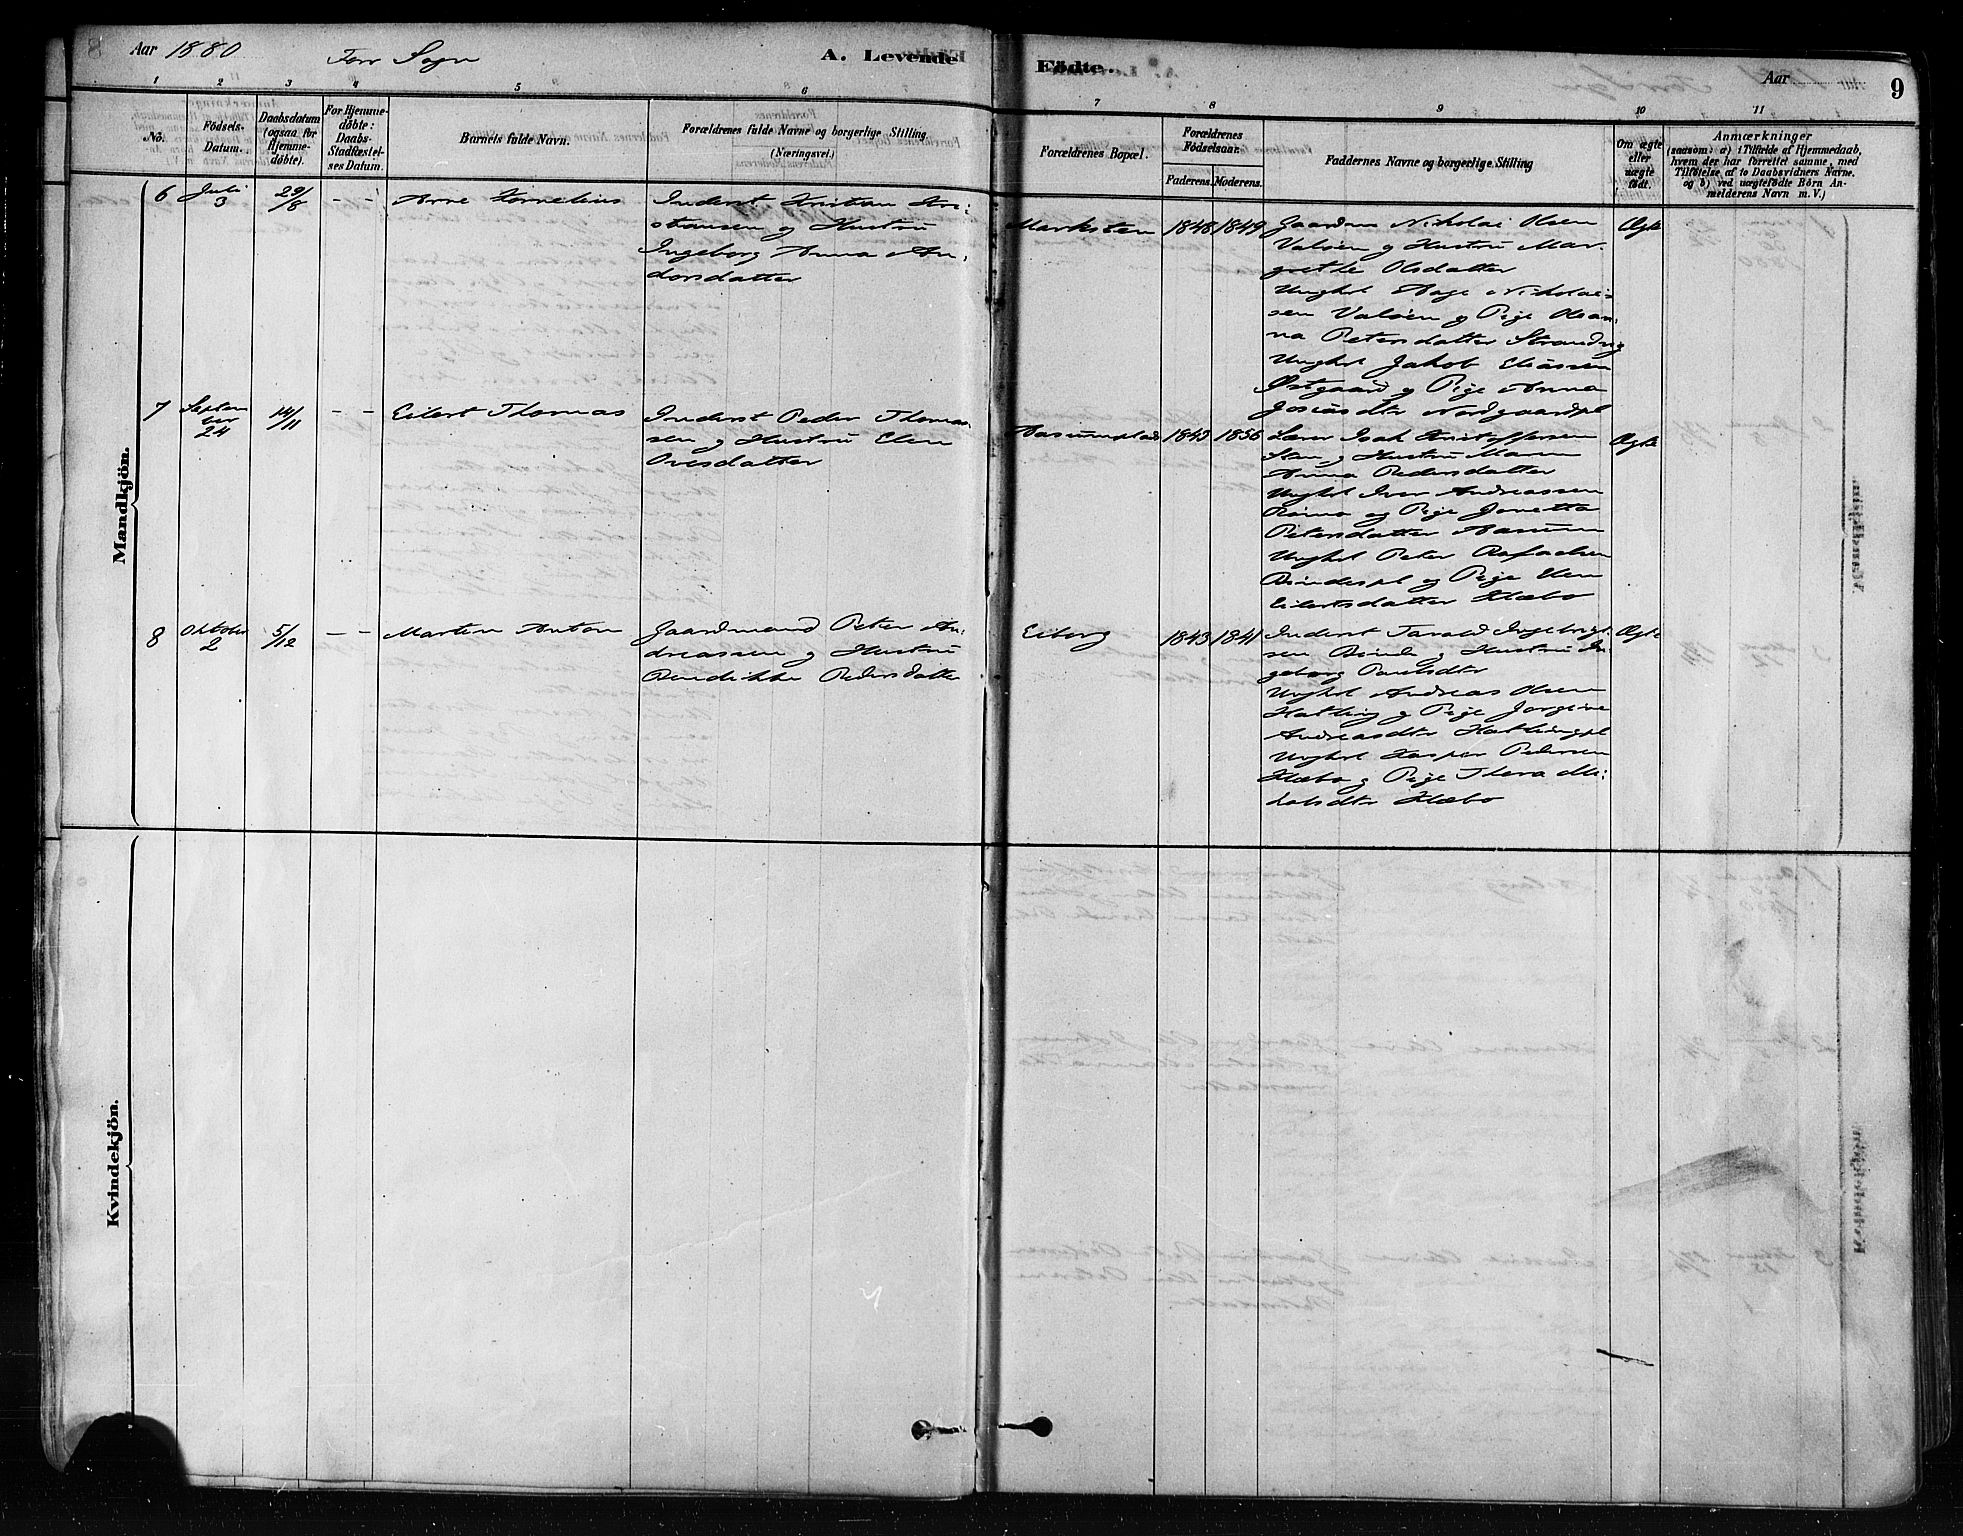 8 Aar 1880 For Sogn A. Levende Födte. Aar 9
1 2 3 4 5 6 7 8 9 10 11
No. Födsels-Datum. Daabsdatum (ogsaa for Hjemme-döbte). For Hjemme-döbte: Daabs-Stadfæstel-ses Datum. Barnets fulde Navn. Forældrenes fulde Navne og borgerlige Stilling. (Næringsvei.)
Forældrenes Bopæl. Forældrenes Födselsaar. Faderens. Moderens. Faddernes Navne og borgerlige Stilling Om ægte eller uægte födt.
Anmærkninger
(saasom: a) i Tilfælde af Hjemmedaab,
hvem der har forrettet samme, med
Tilföielse af to Daabsvidners Navne.
og b) ved uægtefödte Börn An-
melderens Navn m. V.)
Mandkjön.
6 Juli 3 29/8 - - Arne Kornelius
Inderst Kristian Kri-
stiansen og Hustru
Ingeborg Anna An-
dorsdatter
Marksten 1848 1849
Gaardm Nikolai Olsen
Valöen og Hustru Mar-
grethe Olsdatter
Ungkl Aage Nikolai-
sen Valöen og Pige
na Petersdatter Strand og
Ungkl Jakob Eliassen
Östgaard og Pige Anna
Josiasdtr Nordgaardpl
Ægte
7 Septem
ber
24 14/11 - - Eilert Thomas
Inderst Peder Thomas-
sen og Hustru Elen
Ovesdatter
1843 1856
Lærer Isak Kristoffersen
Sten og Hustru Maren
Anna Pedersdatter
Ungkl Iver Andreassen
og Pige Jonetta
Petersdatter Aasum
Ungkl Peter Rafaelsen
Bindespl og Pige Elen
Eilertsdatter Klæbo
Ægte
8 Oktober 2 5/12 - - Martin Anton
Gaardmand Peter An-
dreassen og Hustru
Benedikke Pedersdatter
Eiborg 1843 1841
Inderst Tarald Ingebrigt-
sen Binde og Hustru In-
geborg Paulsdtr
Ungkl Andreas Olsen
Hatling og Pige Jorgine
Andreasdtr Hatlingpl
Ungkl Kasper Pedersen
Klæbo og Pige Thora Mi-
kalsdtr Klæbo
Ægte
Kvindekjön.